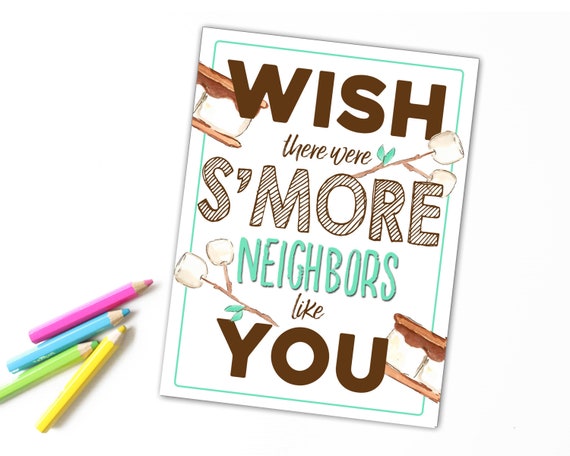 WISH
there were
S'MORE
NEIGHBORS
like
YOU